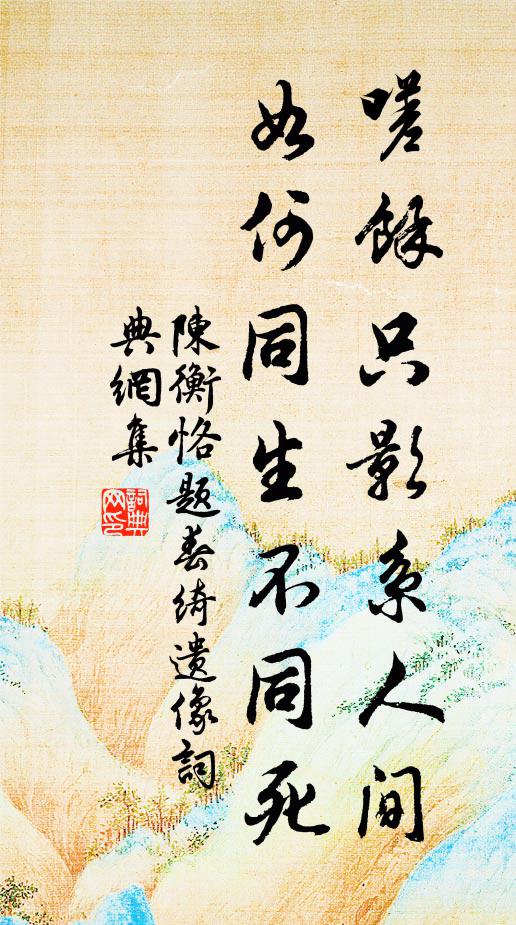 嗟餘只影系人间
如何同生不同死
陳衡恪题春绮遗像詞
典網集
詞典
网印